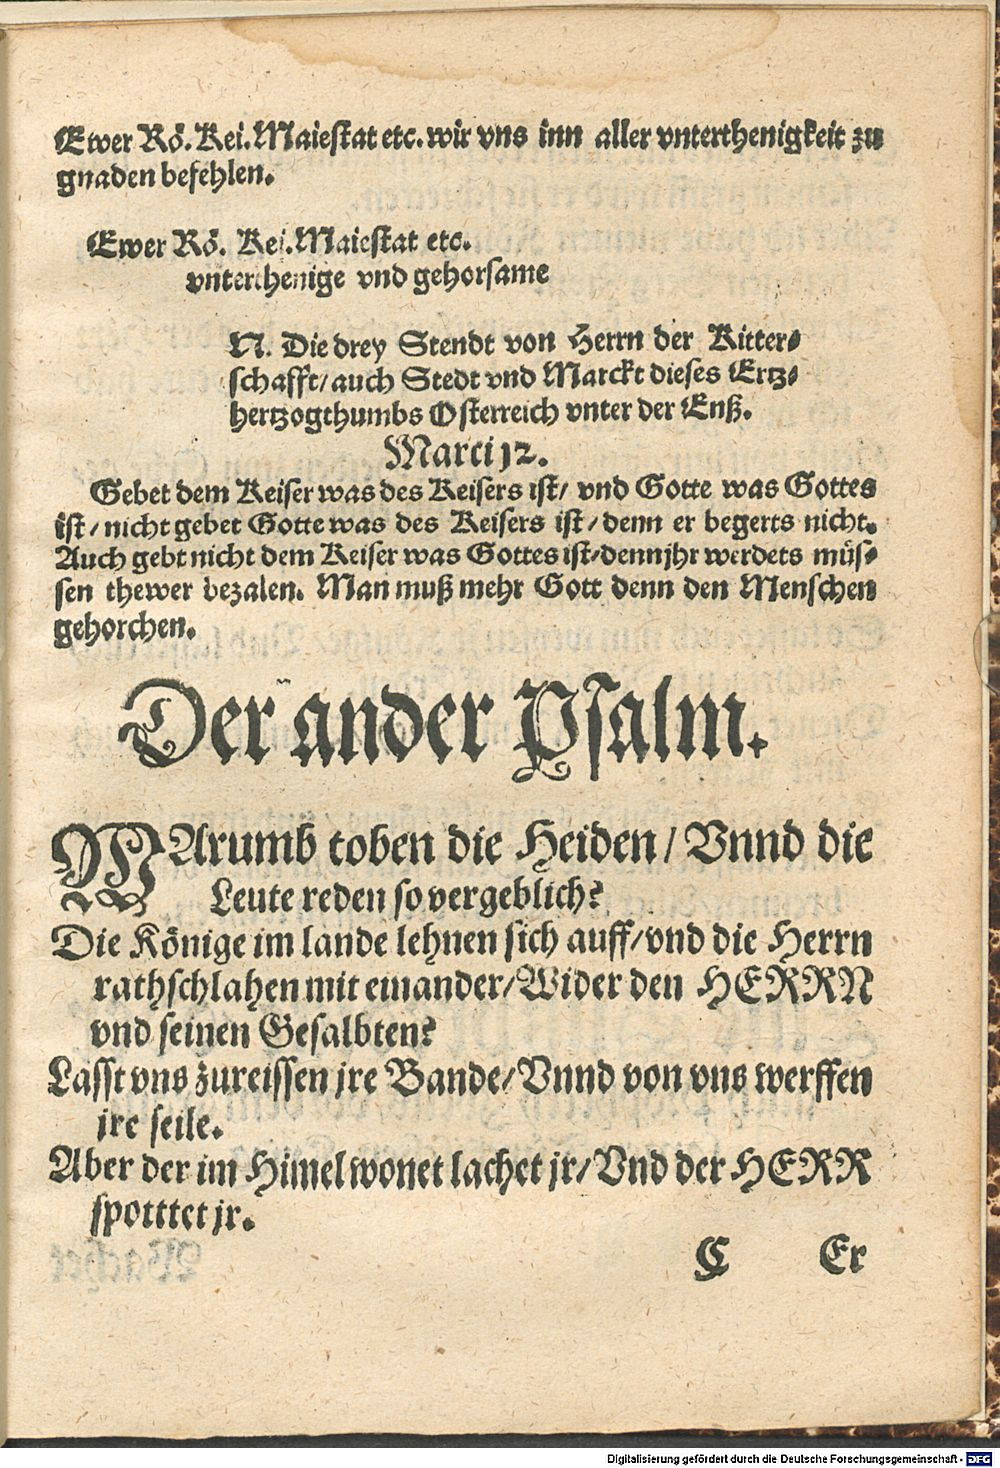 Ewer Rö. Kei. Maiestat etc. wir vns inn aller vnterthenigkeit zu
gnaden befehlen.
Ewer Rö. Kei. Maiestat etc.
vnterthenige vnd gehorsame
N. Die drey Stendt von Herrn der Ritter-
schafft/ auch Stedt vnd Marckt dieses Ertz-
hertzogthumbs Osterreich vnter der Enß.
Marci 12.
Gebet dem Keiser was des Keisers ist/ vnd Gotte was Gottes
ist/ nicht gebet Gotte was des Keisers ist/ denn er begerts nicht.
Auch gebt nicht dem Keiser was Gottes ist/ denn jhr werdets müs-
sen thewer bezalen. Man muß mehr Gott denn den Menschen
gehorchen.
Der ander Psalm.
WArumb toben die Heiden/ Vnnd die
Leute reden so vergeblich?
Die Könige im lande lehnen sich auff/ vnd die Herrn
rathschlahen mit einander/ Wider den HERRN
vnd seinen Gesalbten?
Lasst vns zureissen jre Bande/ Vnnd von vns werffen
jre seile.
Aber der im Himel wonet lachet jr/ Vnd der HERR
spotttet jr.
C Er
Digitalisierung gefördert durch die Deutsche Forschungsgemeinschaft - DFG